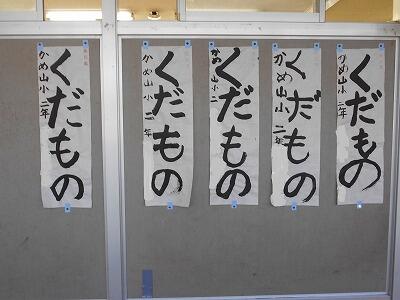 くだもの
かめ山小 二年
くだもの
かめ山小 二年
くだもの
かめ山小 二
くだもの
かめ山小 二年
くだもの
かめ山小 二年